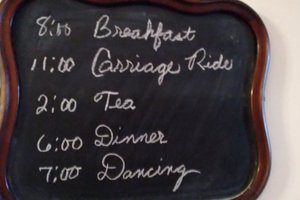 8:00 Breakfast
11:00 Carriage Ride
2:00 Tea
6:00 Dinner
7:00 Dancing